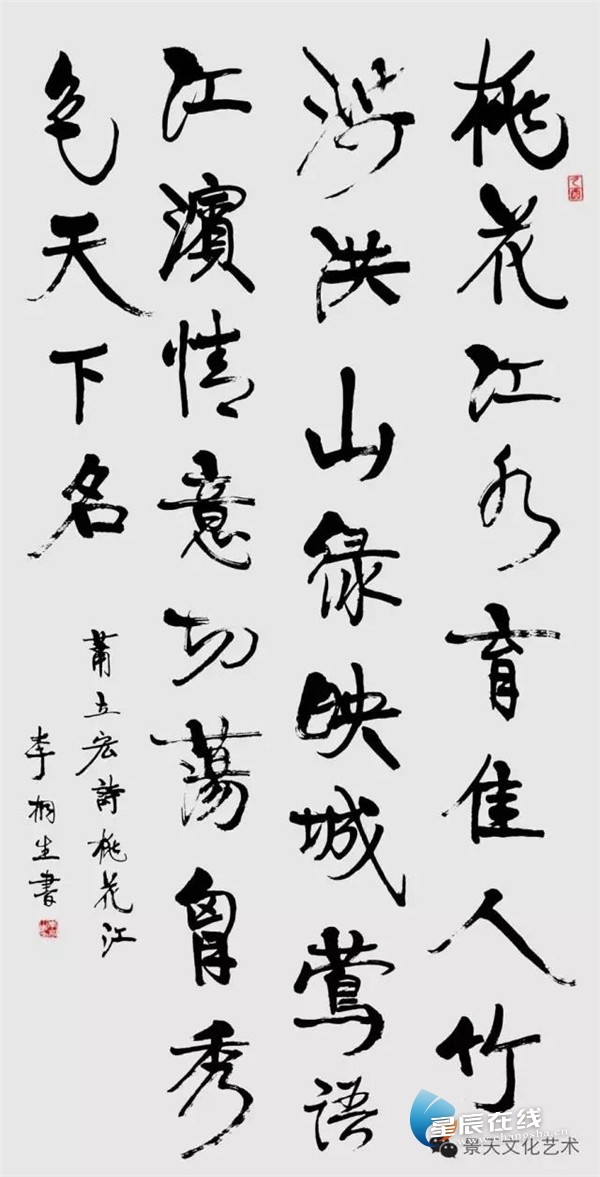 桃花江水育佳人竹
涛洪山绿映城莺语
江濱情意切蕩胷秀
色天下名
萧立宏詩桃花江
李桐生書
星辰在线
景天文化艺术